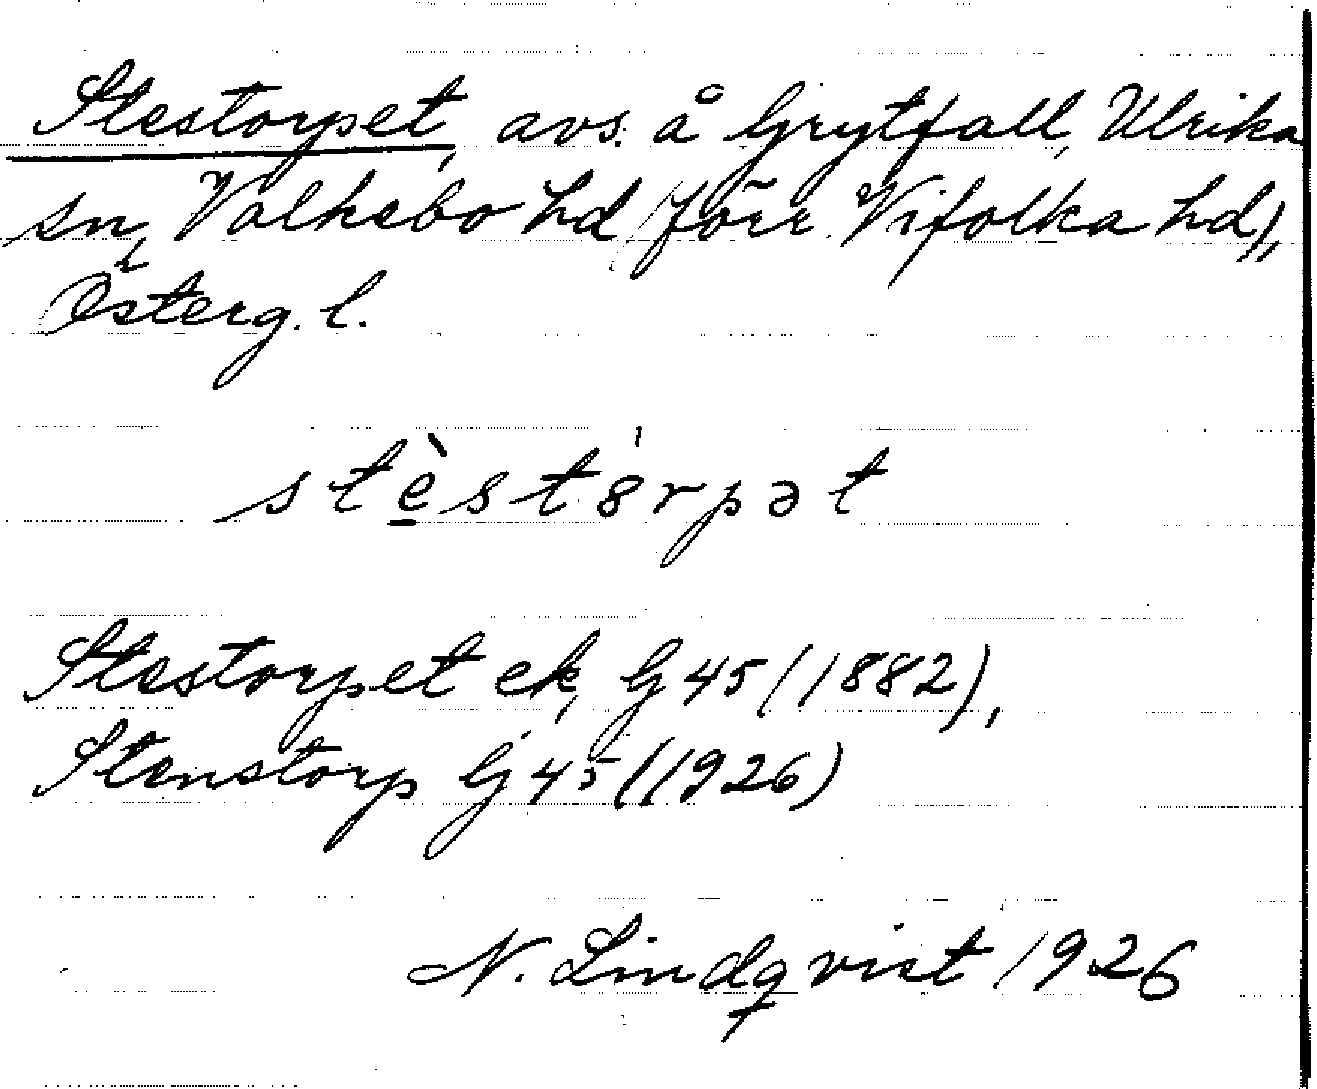 Stestorpet, avs. å Grytfall, Ulrika
sn, Valkebo hd (förr Vifolka hd),
Österg. l.
stèstȣ́rpət
Stestorpet ek, G 45 (1882),
Stenstorp G 45 (1926)
N. Lindqvist 1926